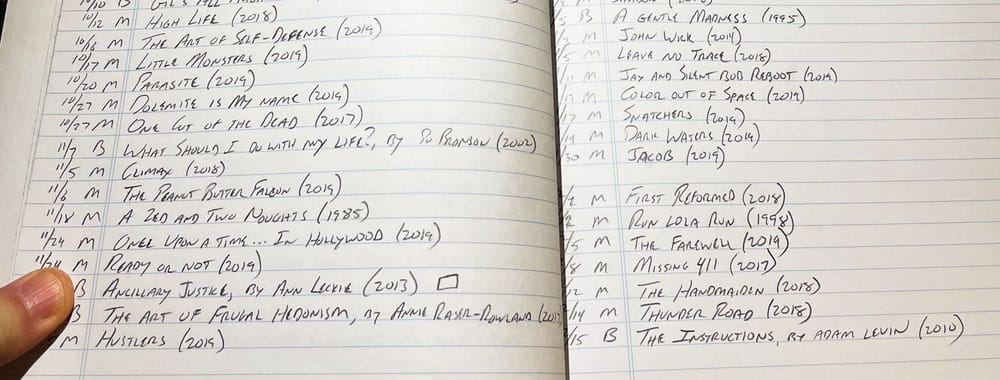 10/10 B
10/12 M HIGH LIFE (2018)
10/16 M THE ART OF SELF-DEFENSE (2019)
10/17 M LITTLE MONSTERS (2019)
10/20 M PARASITE (2019)
10/27 M DOLEMITE IS MY NAME (2019)
10/27 M ONE CUT OF THE DEAD (2017)
11/7 B WHAT SHOULD I DO WITH MY LIFE?, BY PO BRONSON (2002)
11/5 M CLIMAX (2018)
11/6 M THE PEANUT BUTTER FALCON (2019)
11/18 M A ZED AND TWO NOUGHTS (1985)
11/24 M ONCE UPON A TIME... IN HOLLYWOOD (2019)
11/24 M READY OR NOT (2019)
B ANCILLARY JUSTICE, BY ANN LECKIE (2013)
B THE ART OF FRUGAL HEDONISM, BY ANNIE RASER-ROWLAND (2017
M HUSTLERS (2019)
/5 B A GENTLE MADNESS (1995)
/2 M JOHN WICK (2014)
/5 M LEAVE NO TRACE (2018)
/11 M JAY AND SILENT BOB REBOOT (2019)
M COLOR OUT OF SPACE (2019)
/17 M SNATCHERS (2019)
/19 M DARK WATERS (2019)
/30 M JACOB (2019)
/1 M FIRST REFORMED (2018)
/2 M RUN LOLA RUN (1998)
/5 M THE FAREWELL (2019)
/8 M MISSING 411 (2017)
/12 M THE HANDMAIDEN (2018)
/14 M THUNDER ROAD (2018)
/15 B THE INSTRUCTIONS, BY ADAM LEVIN (2010)